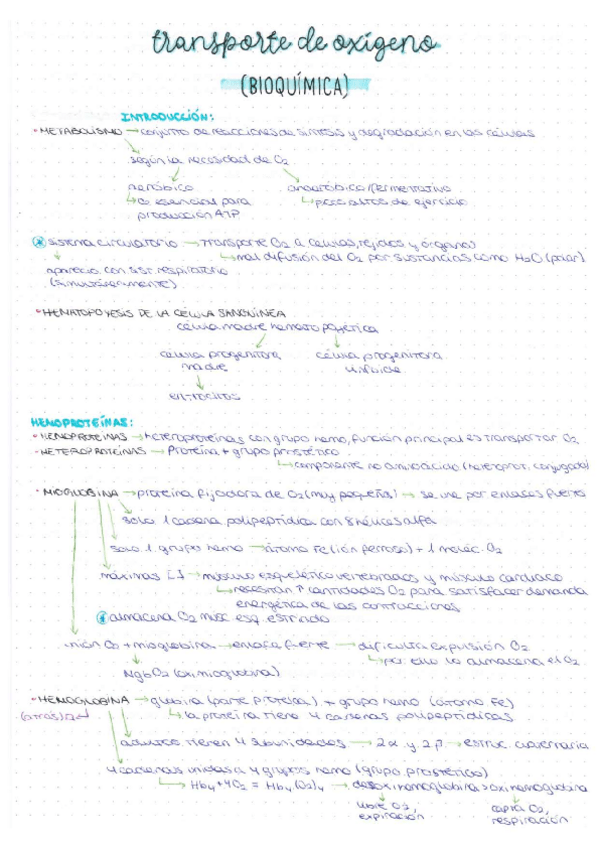 transporte de oxígeno
(BIOQUÍMICA)
INTRODUCCIÓN:
• METABOLISMO → conjunto de reacciones de síntesis y degradación en las células
según la necesidad de O2
aeróbico anaeróbico/fermentativo
↳ O2 esencial para ↳ para altos de ejercicio
producción ATP
sistema circulatorio → transporte O2 a células, tejidos y órganos
↳ mal difusión del O2 por sustancias como H2O (polar)
apareció con sist. respiratorio
(simultáneamente)
• HEMATOPOYESIS DE LA CÉLULA SANGUÍNEA
célula madre hematopoyética
célula progenitora célula progenitora
linfoide
eritrocitos
HEMOPROTEÍNAS:
• HEMOPROTEÍNAS → heteroproteínas con grupo hemo, función principal es transportar O2
• HETEROPROTEÍNAS → Proteína + grupo prostético
↳ componente no aminoácido (heteroprot. conjugada)
• MIOGLOBINA → proteína fijadora de O2 (muy pequeña) → se une por enlaces fuerte
solo 1 cadena polipeptídica con 8 hélices alfa
solo 1 grupo hemo → átomo Fe (ión ferroso) + 1 moléc. O2
máximas [ ] → músculo esquelético vertebrados y músculo cardíaco
↳ necesitan ↑ cantidades O2 para satisfacer demanda
energética de las contracciones
almacena O2 másc. esq. estriado
unión O2 + mioglobina → enlace fuerte → dificulta expulsión O2
↳ por ello lo almacena el O2
MgbO2 (oximioglobina)
• HEMOGLOBINA → globina (parte proteica) + grupo hemo (átomo Fe)
(atrás) ↳ la proteína tiene 4 cadenas polipeptídicas
adultos tienen 4 subunidades → 2α y 2β → estruc. cuaternaria
4 cadenas unidas a 4 grupos hemo (grupo prostético)
↳ Hb4 + 4O2 = Hb4(O2)4 → desoxihemoglobina > oxihemoglobina
libre O2, capta O2,
expiración respiración